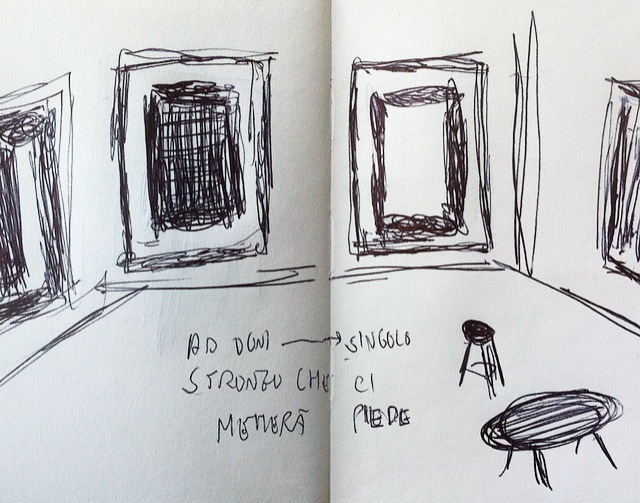 AD OGNI → SINGOLO
STRONZO CHE CI
METTERÀ PIEDE